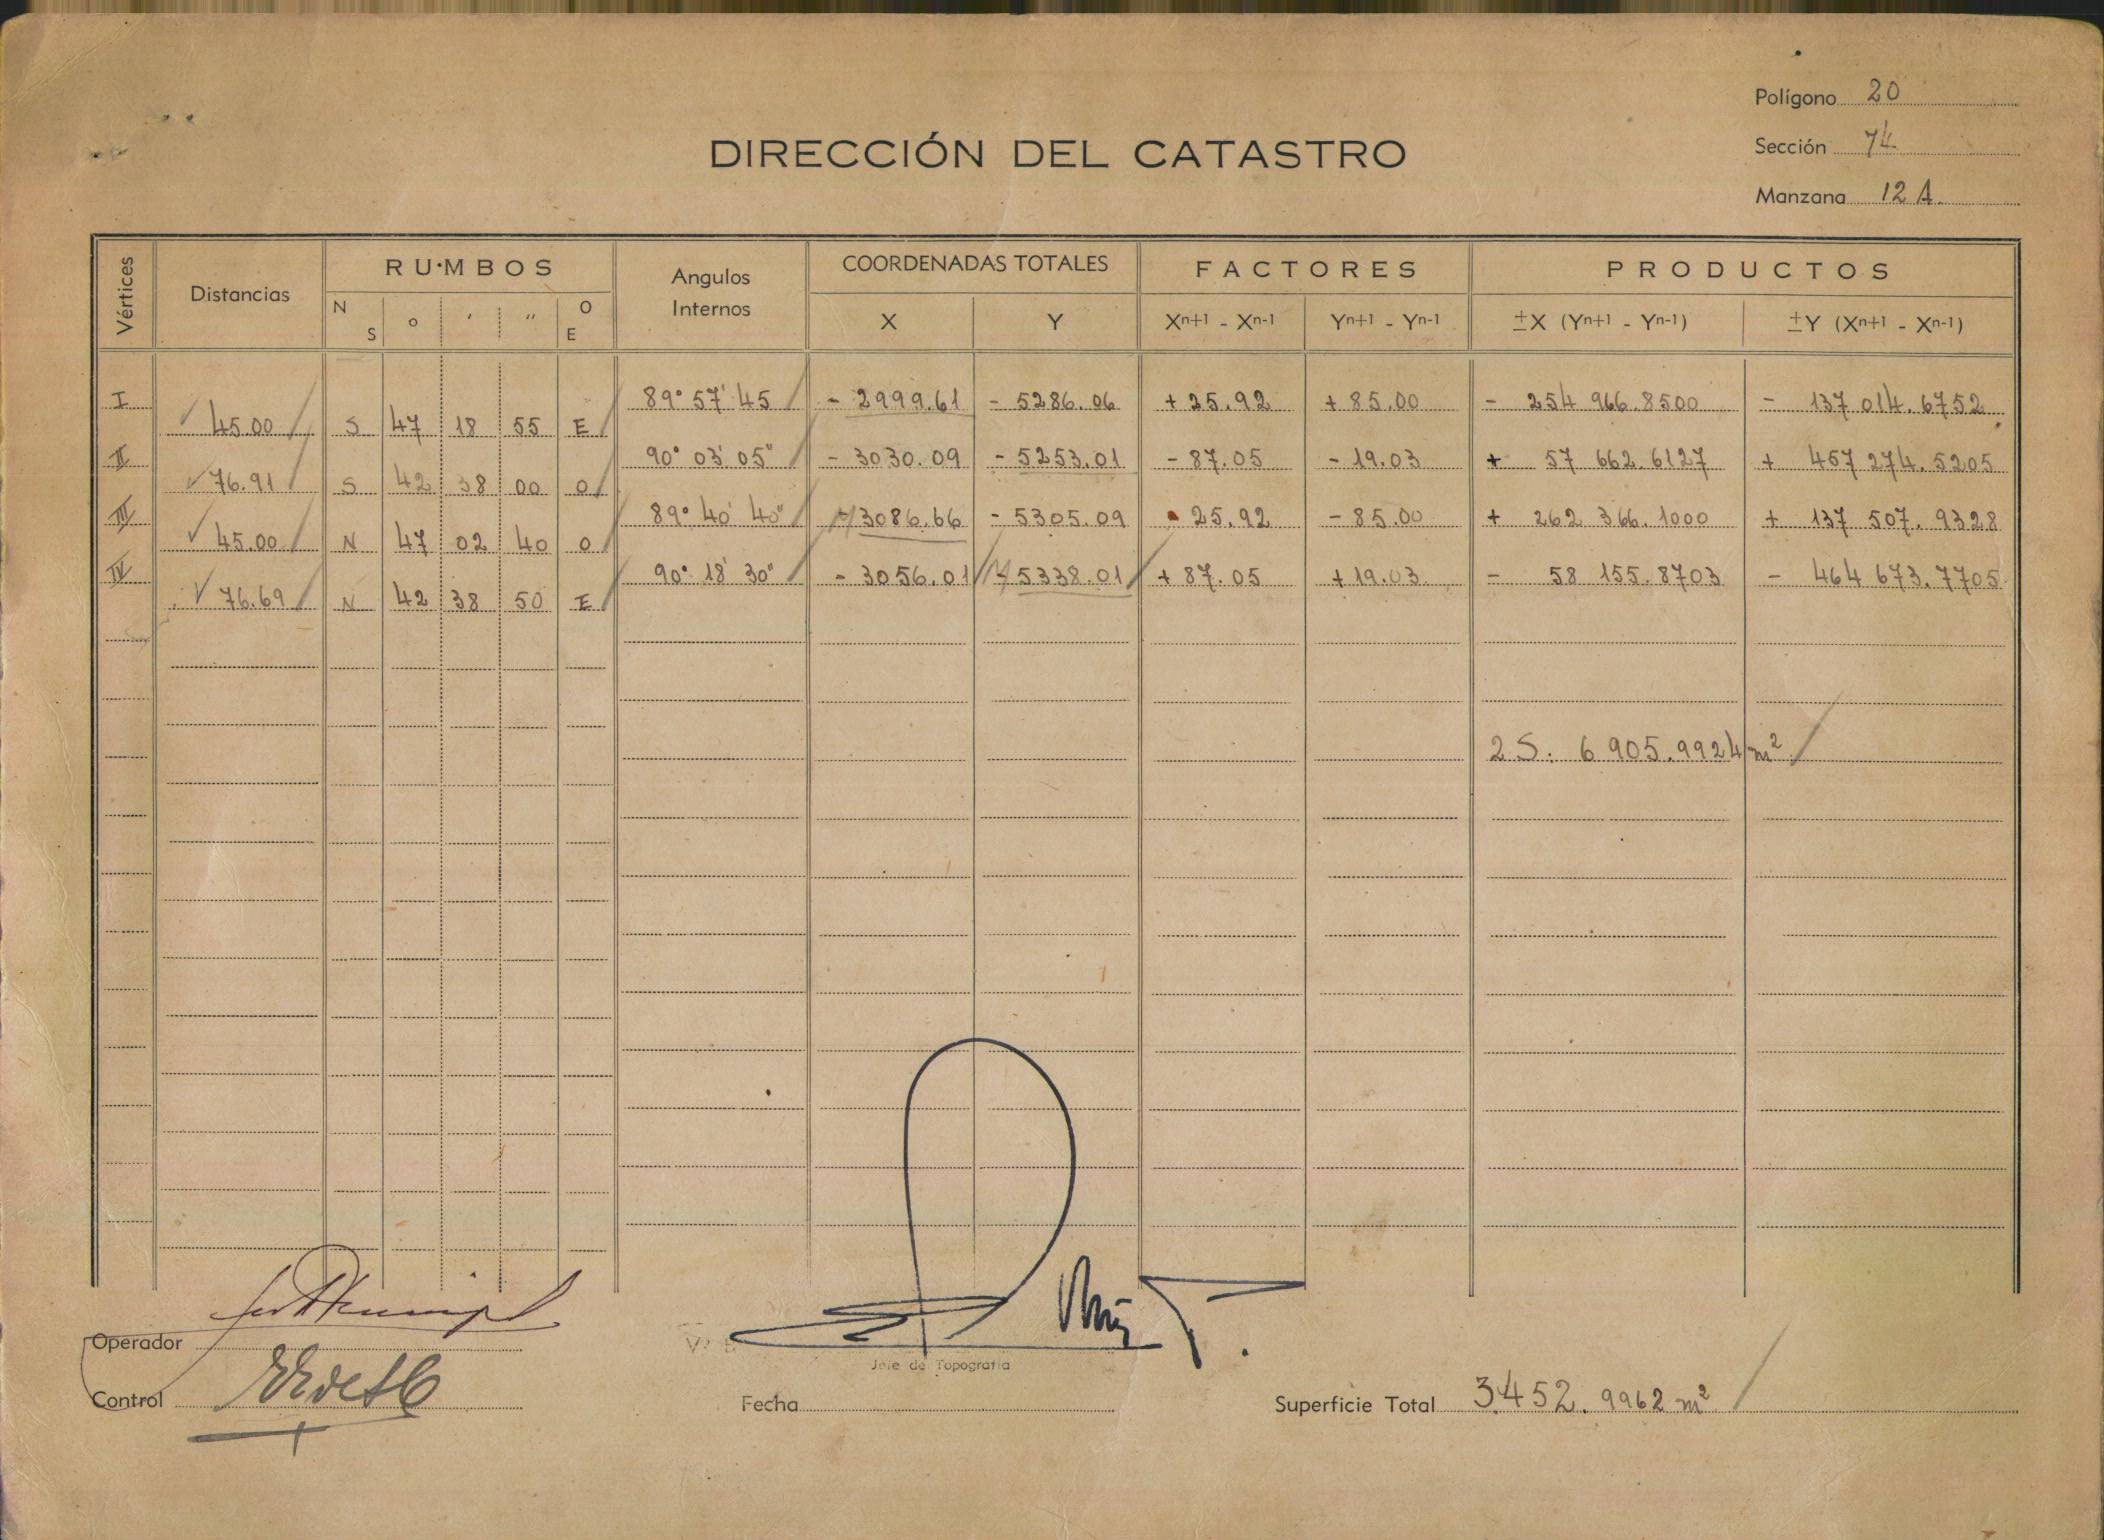 Polígono 20
DIRECCIÓN DEL CATASTRO
Sección 74
Manzana 12 A.
Vértices
Distancias
RUMBOS
N S
o
′
″
O E
Angulos Internos
COORDENADAS TOTALES
X
Y
FACTORES
Xn+1 - Xn-1
Yn+1 - Yn-1
PRODUCTOS
±X (Yn+1 - Yn-1)
±Y (Xn+1 - Xn-1)
I 89° 57' 45 - 2999.61 - 5286.06 + 25.92 + 85.00 - 254 966.8500 - 137 014.6752
45.00 S 47 18 55 E
II 90° 03' 05" - 3030.09 - 5253.01 - 87.05 - 19.03 + 57 662.6127 + 457 274.5205
76.91 S 42 38 00 O
III 89° 40' 40" - 3086.66 - 5305.09 - 25.92 - 85.00 + 262 366.1000 + 137 507.9328
45.00 N 47 02 40 O
IV 90° 18' 30" - 3056.01 - 5338.01 + 87.05 + 19.03 - 58 155.8703 - 464 673.7705
76.69 N 42 38 50 E
2S: 6 905.9924 m²
Operador
Jefe de Topografía
Control
Fecha
Superficie Total 3.452.9962 m²